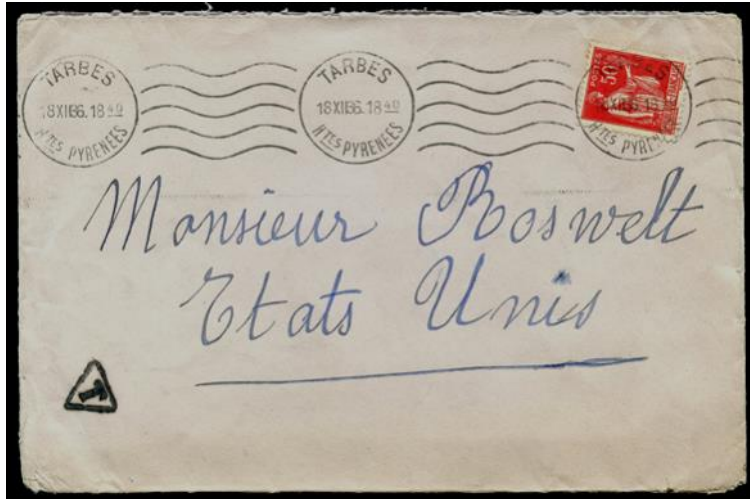 TARBES
18 XII 36. 18 40
HTES PYRENEES
TARBES
18 XII 36. 18 40
HTES PYRENEES
POSTES
50
HTES PYRENEES
Monsieur Roswelt
Etats Unis
T